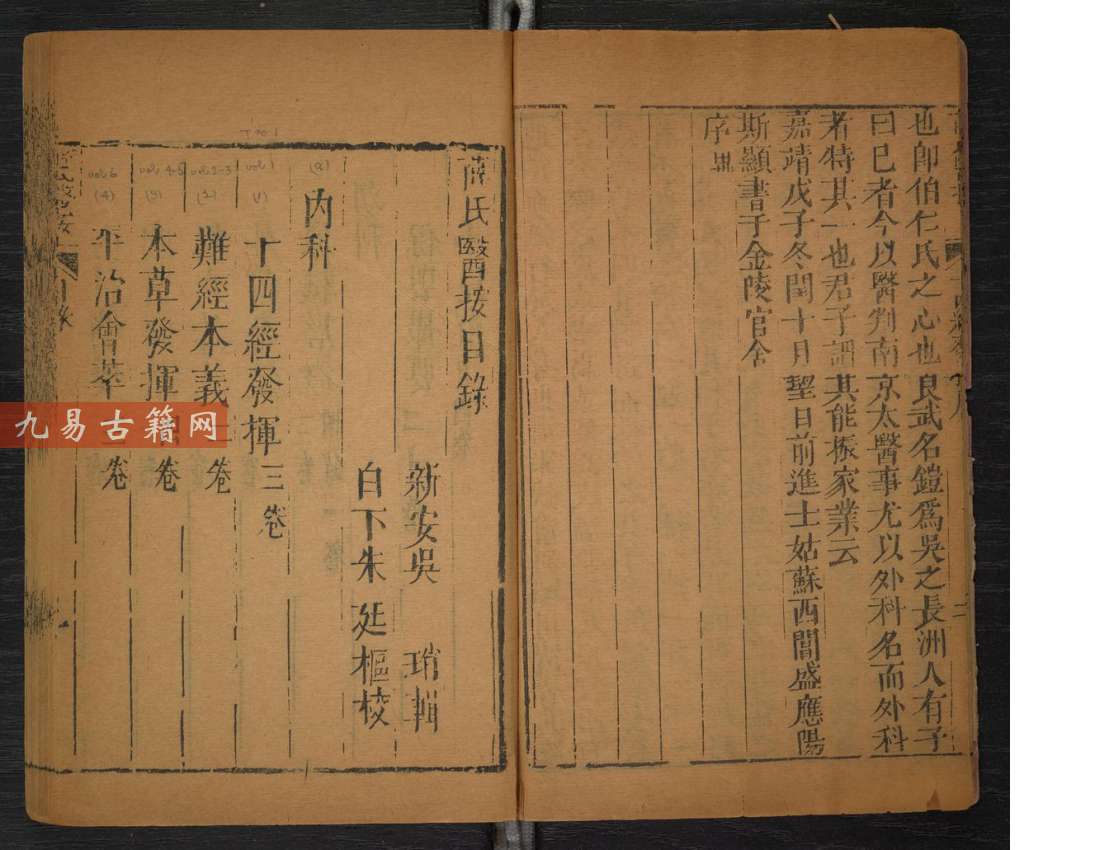 也卽伯仁氏之心也良武名鎧爲吳之長洲人有子
曰己者今以醫判南京太醫事尤以外科名而外科
者特其一也君子謂其能振家業云
嘉靖戊子冬閏十月望日前進士姑蘇西閶盛應陽
斯顯書于金陵官舍
序畢
薛氏醫按目錄
新安吳 琯輯
白下朱廷樞校
內科
十四經發揮三卷
難經本義二卷
本草發揮 卷
平治會萃 卷
目錄
vol 1
vol 2-3
vol 4-5
vol 6
九易古籍网